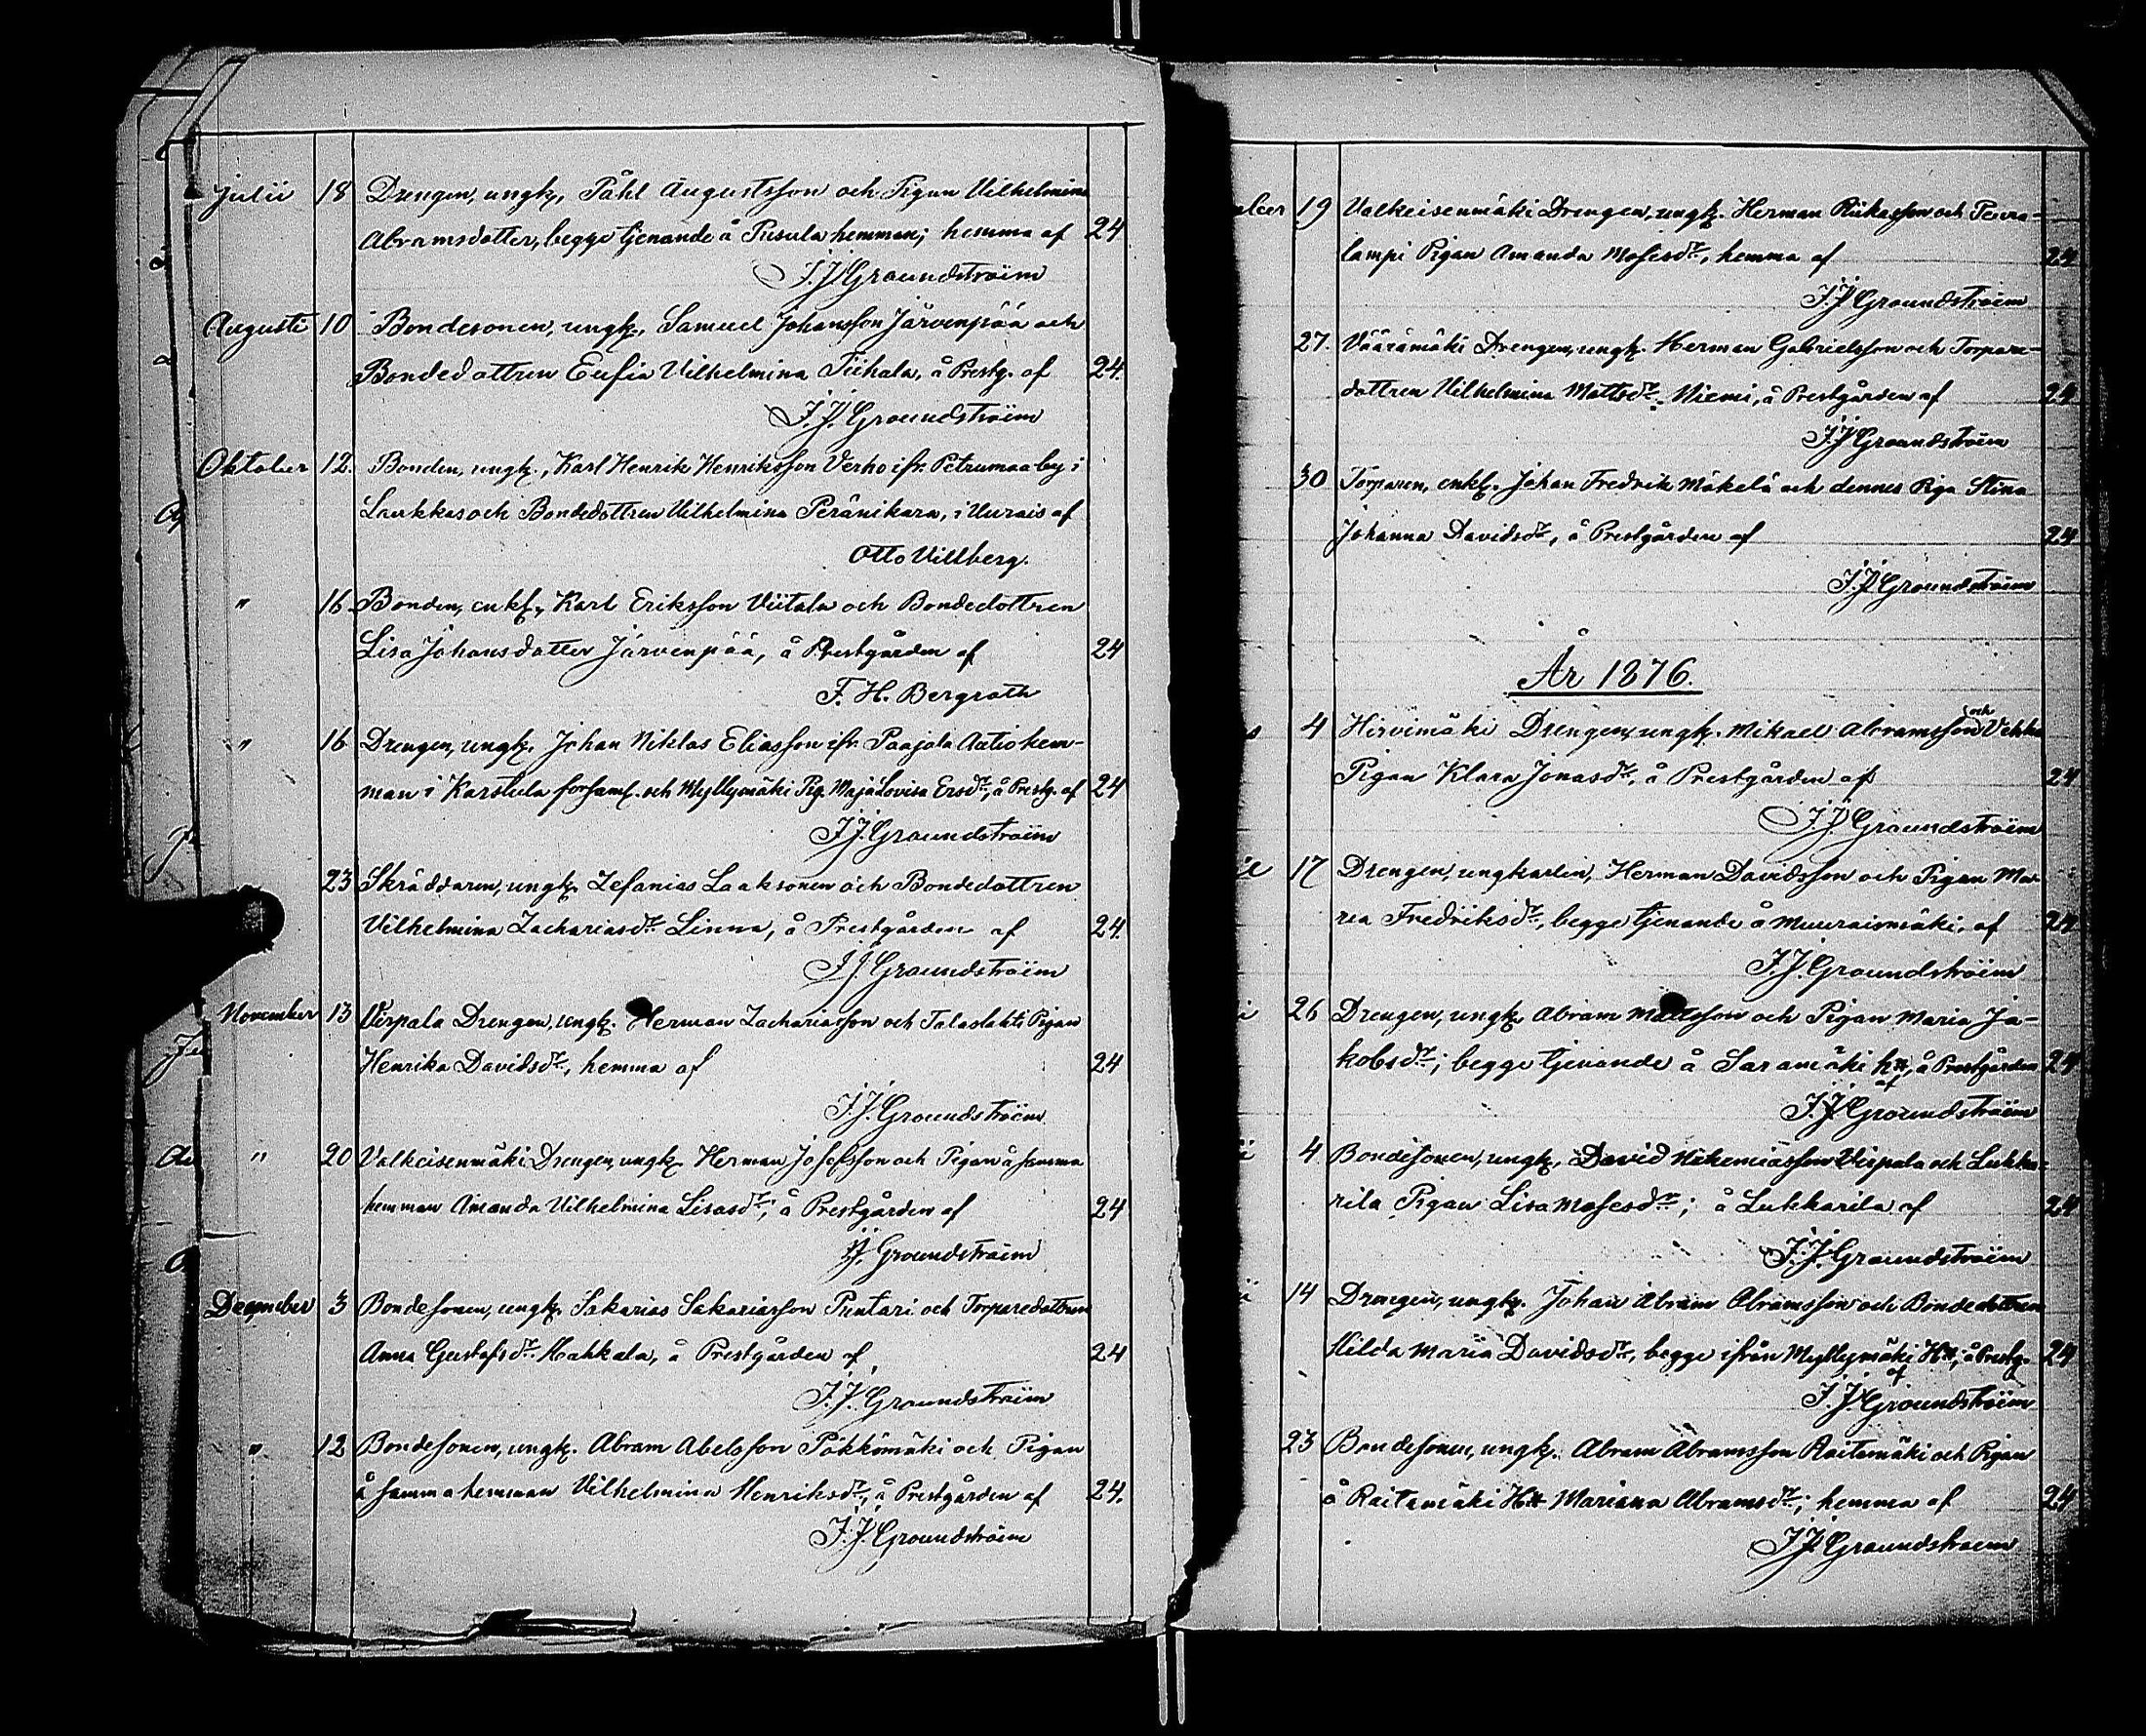 Julii 18 Drengen, ungk. Påhl Augustsson och Pigan Vilhelmina
Abramsdotter, begge tjenande å Pusula hemman; hemma af 24
J. J. Groundstroëm
Augusti 10 Bondesonen, ungk., Samuel Johansson Järvenpää och
Bondedottren Eufia Vilhelmina Tiihala, å Prestg. af 24.
J. J. Groundstroëm
Oktober 12. Bonden, ungk., Karl Henrik Henriksson Verho ifr. Petrumaa by i
Laukkas och Bondedottren Vilhelmina Peränikara, i Uurais af
Otto Villberg.
" 16 Bonden, enkl., Karl Eriksson Viitala och Bondedottren
Lisa Johansdotter Järvenpää, å Prestgården af 24
F. H. Bergroth
" 16 Drengen, ungk. Johan Niklas Eliasson ifr. Paajala Autiohem-
man i Karstula forsaml. och Myllymäki Pig. Maja Lovisa Ersdr, å Prestg. af 24
J. J. Groundstroëm
23 Skräddaren, ungk. Zefanias Laaksonen och Bondedottren
Vilhelmina Zachariasdr Linna, å Prestgården af 24.
J. J. Groundstroëm
November 13 Virpala Drengen, ungk. Herman Zachariasson och Talaslahti Pigan
Henrika Davidsdr, hemma af 24
J. J. Groundstroëm
" 20 Valkeisenmäki Drengen, ungk. Herman Josefsson och Pigan å samma
hemman Amanda Vilhelmina Lisasdr, å Prestgården af 24
J. J. Groundstroëm
December 3 Bondesonen, ungk. Sakarias Sakariasson Puntari och Torparedottren
Anna Gustafsdr Hahkala, å Prestgården af 24
J. J. Groundstroëm
" 12 Bondesonen, ungk. Abram Abelsson Pökkömäki och Pigan
å samma hemman Vilhelmina Henriksdr, å Prestgården af 24.
J. J. Groundstroëm
19 Valkeisenmäki Drengen, ungk. Herman Riikasson och Peura-
lampi Pigan Amanda Mosesdr, hemma af 24
J. J. Groundstroëm
27. Väärämäki Drengen, ungk. Herman Gabrielsson och Torpare-
dottren Vilhelmina Mattsdr Niemi, å Prestgården af 24
J. J. Groundstroëm
30 Torparen, enkl. Johan Fredrik Mäkelä och dennes Piga Stina
Johanna Davidsdr, å Prestgården af 24
J. J. Groundstroëm
År 1876.
4 Hirvimäki Drengen, ungk. Mikael Abramsson och Vehka
Pigan Klara Jonasdr, å Prestgården af 24
J. J. Groundstroëm
17 Drengen, ungkarlen, Herman Davidsson och Pigan Ma-
ria Fredriksdr, begge tjenande å Muuraismäki, af 24
J. J. Groundstroëm
26 Drengen, ungk. Abram Mattsson och Pigan Maria Ja-
kobsdr; begge tjenande å Saramäki hn, å Prestgården 24
af J. J. Groundstroëm
4 Bondesonen, ungk. David Nehemiasson Virpala och Lukka-
rila Pigan Lisa Mosesdr; å Lukkarila af 24
J. J. Groundstroëm
14 Drengen, ungk. Johan Abram Abramsson och Bondedottren
Hilda Maria Davidsdr, begge ifrån Myllymäki Hn, å Prestg. 24
af J. J. Groundstroëm
23 Bondesonen, ungk. Abram Abramsson Raitamäki och Pigan
å Raitamäki Hn Mariana Abramsdr; hemma af 24
J. J. Groundstroëm